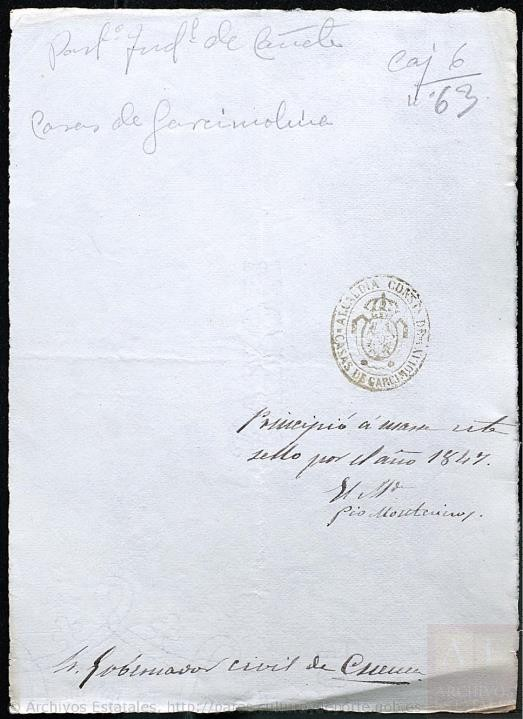 Part.º Jud.l de Cañete
Caj 6
n.º 63
Casas de Garcimolina
ALCALDIA CONST.L DE
CASAS DE GARCIMOLINA
Principió á usarse este
sello por el año 1847.
El
Pio Monteros.
Sr. Gobernador civil de Cuenca
© Archivos Estatales, http://pares.culturaydeporte.gob.es
ARCHIVO